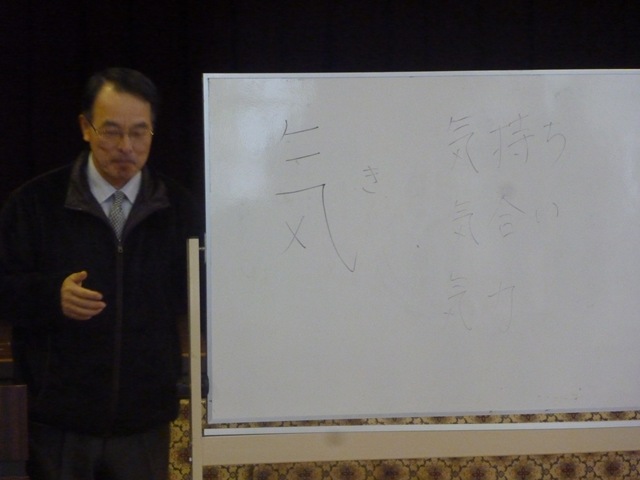 気
き
気持ち
気合い
気力